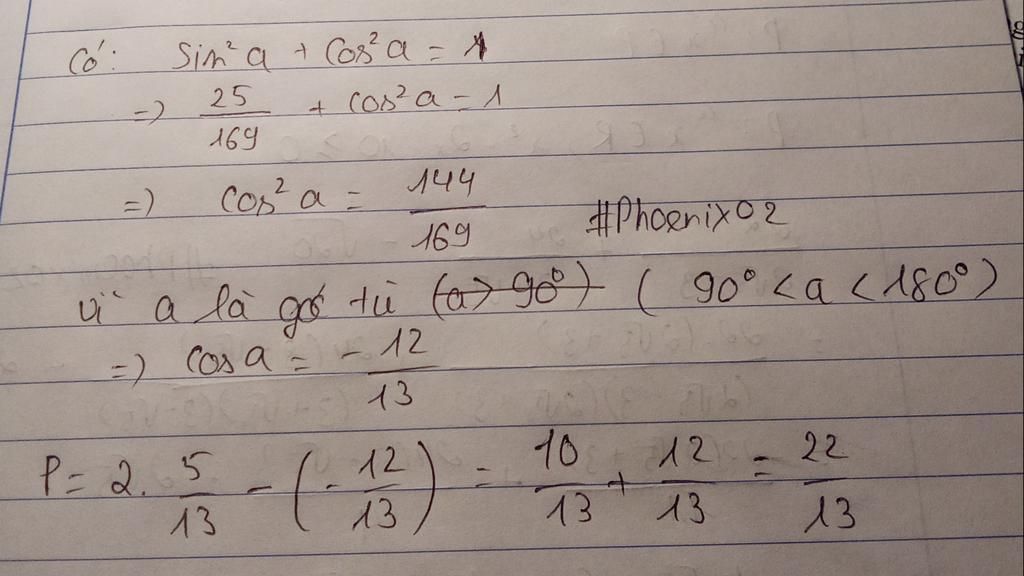 Có: Sin²a + Cos²a = 1
=> 25/169 + cos²a = 1
=> cos²a = 144/169
#Phoenix02
vì a là góc tù (a > 90°) (90° < a < 180°)
=> cosa = -12/13
P = 2. 5/13 - (-12/13) = 10/13 + 12/13 = 22/13